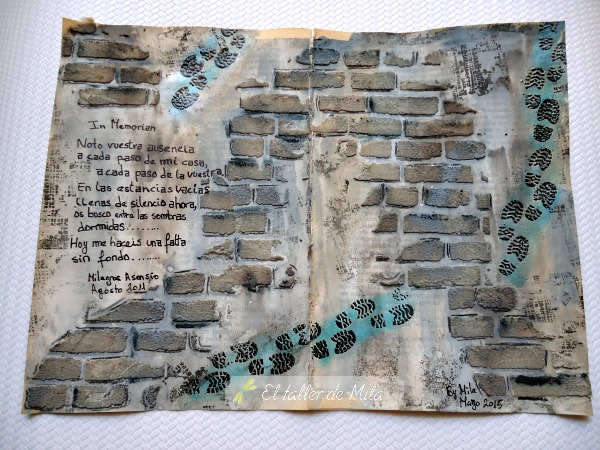 In Memorian
Noto vuestra ausencia
a cada paso de mi casa,
a cada paso de la vuestra,
En las estancias vacías
llenas de silencio ahora,
os busco entre las sombras
dormidas........
Hoy me haceis una falta
sin fondo........
Milagros Asensio
Agosto 2011
By Mila
Mayo 2015
El taller de Mila